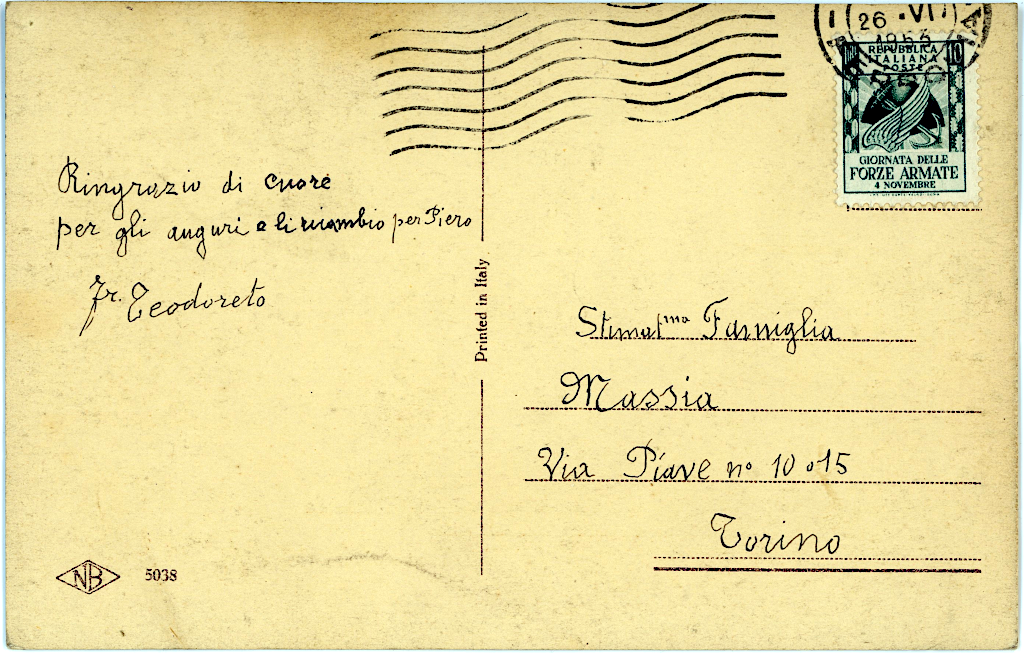 Ringrazio di cuore
per gli auguri e li ricambio per Piero
Fr. Teodoreto
NB 5038
Printed in Italy
26 • VI
1953
REPUBBLICA
ITALIANA
POSTE
10
GIORNATA DELLE
FORZE ARMATE
4 NOVEMBRE
Stimat^ma Famiglia
Massia
Via Piave n° 10 o 15
Torino